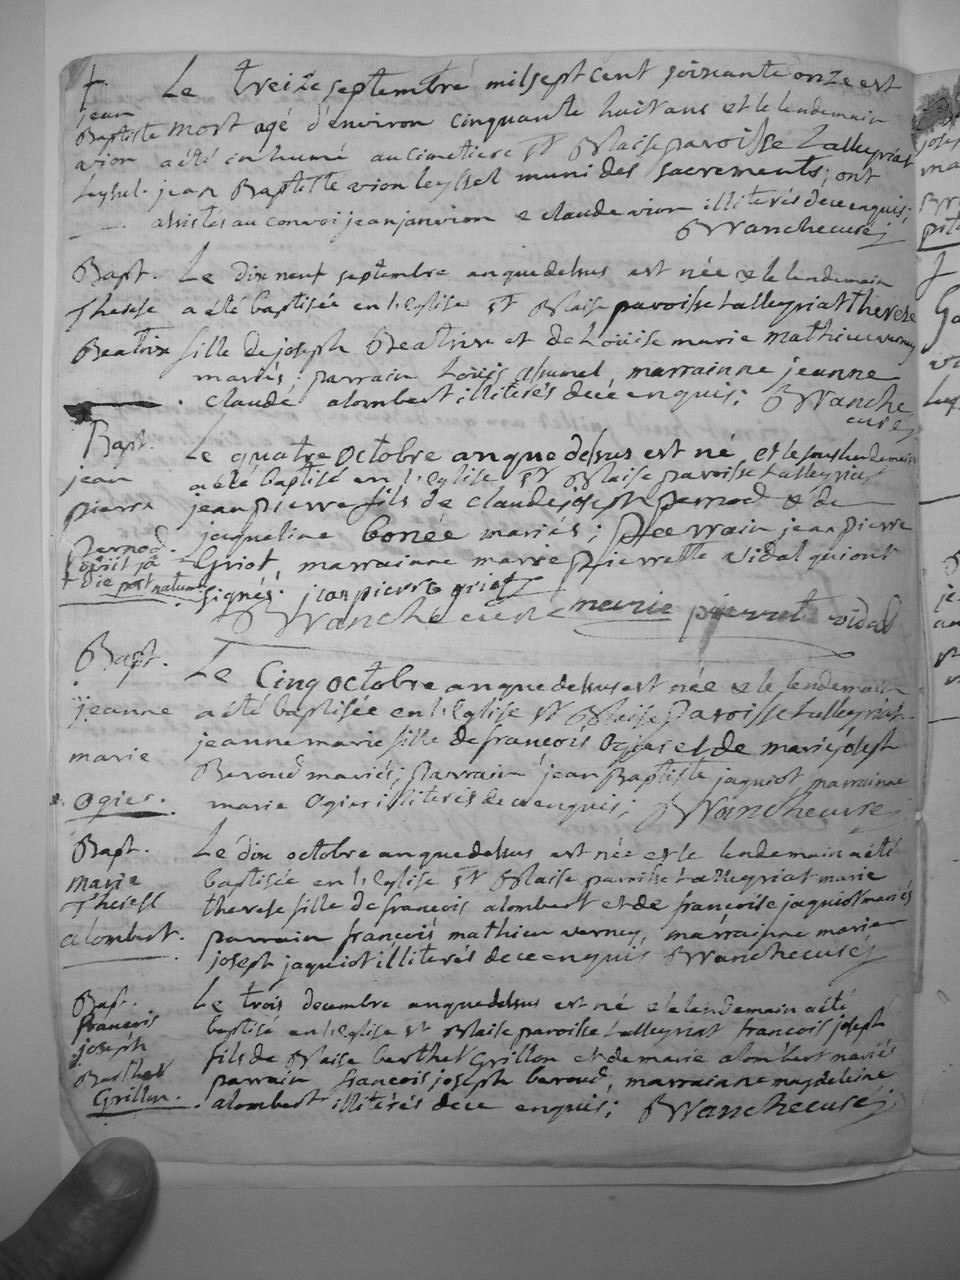 †
jean
Baptiste
vion
Leyssel.
Le treize septembre mil sept cent soixante onze est
mort agé d'environ cinquante huit ans et le lendemain
a été inhumé au cimetiere St Blaise paroisse Lalleyriat
jean Baptiste vion Leyssel muni des sacrements; ont
assistés au convoi jean janvion & claude vion illiterés de ce enquis;
Bapt.
Therese
Beatrix
Le dix neuf septembre an que dessus est née & le lendemain
a été baptisée en l'Eglise St Blaise paroisse Lalleyriat therese
fille de joseph Beatrix et de Loüise marie mathieu verney
mariés; parrain Loüis marrainne jeanne
claude alombert illiterés de ce enquis;
Bapt.
jean
pierre
Pernod.
Le quatre octobre an que dessus est né et le lendemain
a été baptisé en l'Eglise St Blaise paroisse Lalleyriat
jean pierre fils de claude joseph pernod & de
jaqueline bonée mariés; parrain jean pierre
Griot, marrainne marie Pierrette vidal qui ont
signés. jean pierre griot
marie pierret vidal
Bapt.
jeanne
marie
Ogier.
Le Cinq octobre an que dessus est née & le lendemain
a été baptisée en l'Eglise St Blaise Paroisse Lalleyriat
jeanne marie fille de francois Ogier et de marie joseph
Beroud mariés; Parrain jean Baptiste jaquiot marrainne
marie Ogier illiterés de ce enquis;
Bapt.
marie
Therese
alombert.
Le dix octobre an que dessus est née et le lendemain a été
baptisée en l'Eglise St Blaise paroisse Lalleyriat marie
therese fille de francois alombert et de francoise jaquiot mariés
parrain francois mathieu verney, marrainne marie
joseph jaquiot illiterés de ce enquis
Bapt.
francois
joseph
Berthet
Grillon.
Le trois decembre an que dessus est né & le lendemain a été
baptisé en l'Eglise St Blaise paroisse Lalleyriat francois joseph
fils de Blaise berthet Grillon et de marie alombert mariés
parrain francois joseph beroud, marrainne magdeleine
alombert illiterés de ce enquis;